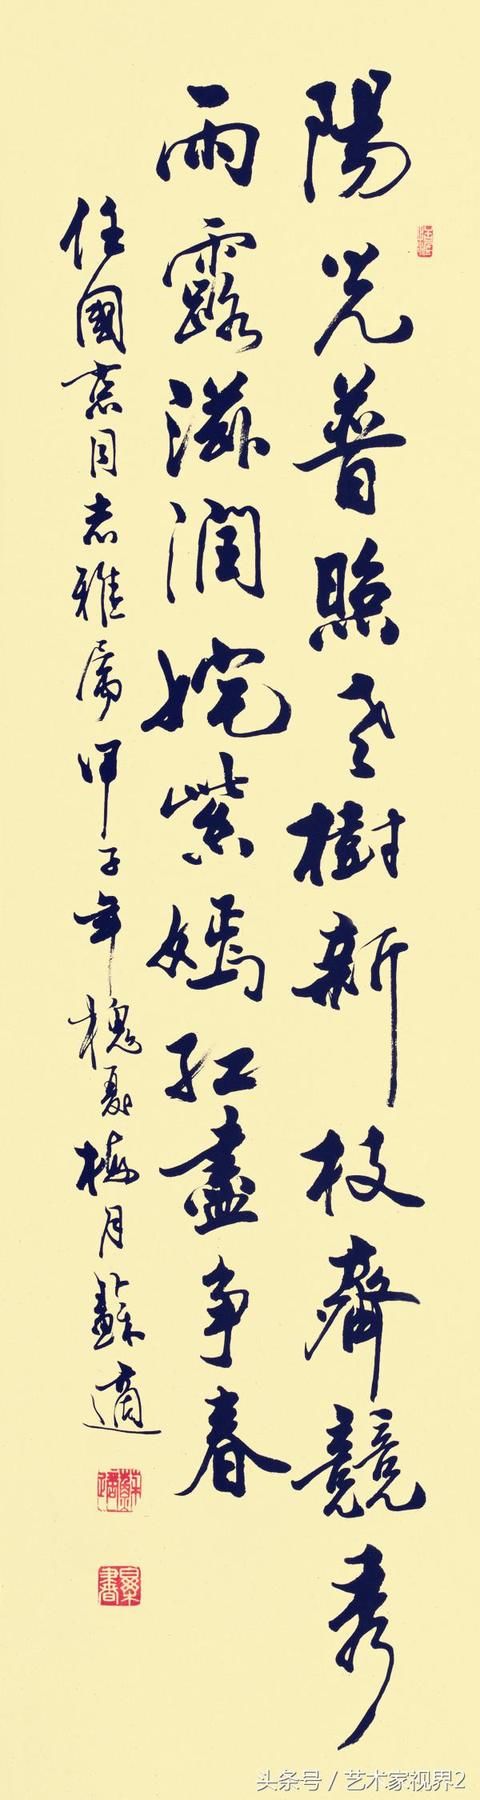 陽光普照老樹新枝齊競秀
雨露滋潤姹紫嫣紅盡争春
任國惠同志雅屬甲子年槐夏梅月蘇適
蘇適
頭条号 / 艺术家视界2